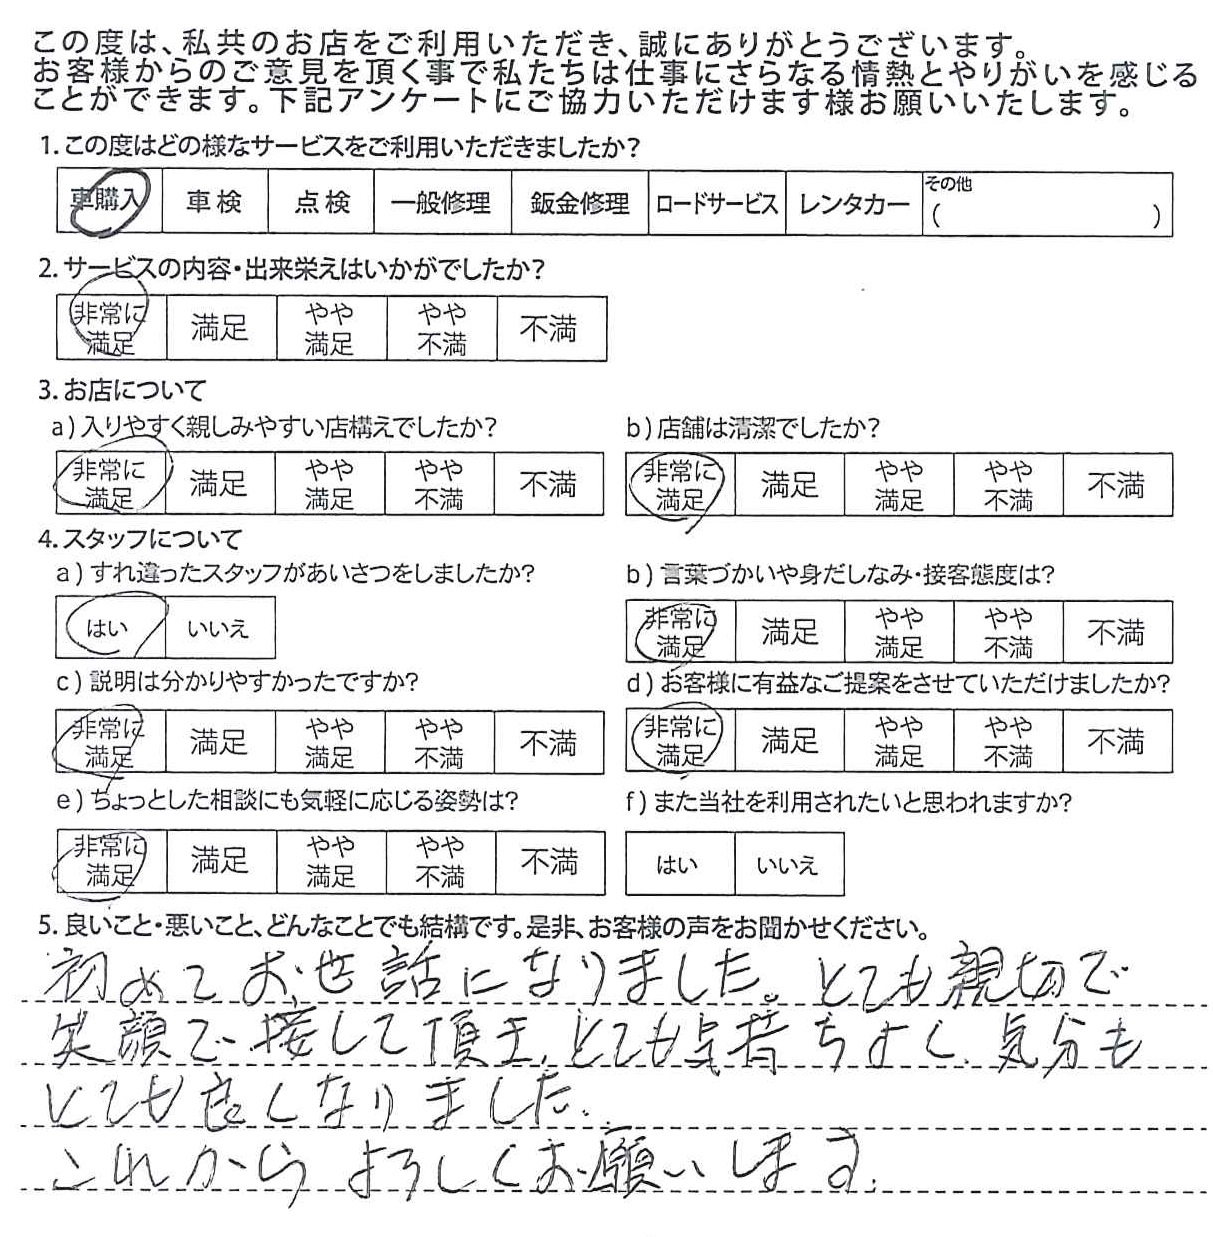 この度は、私共のお店をご利用いただき、誠にありがとうございます。
お客様からのご意見を頂く事で私たちは仕事にさらなる情熱とやりがいを感じる
ことができます。下記アンケートにご協力いただけます様お願いいたします。
1.この度はどの様なサービスをご利用いただきましたか?
車購入 車検 点検 一般修理 鈑金修理 ロードサービス レンタカー その他 ( )
2.サービスの内容・出来栄えはいかがでしたか?
非常に満足 満足 やや満足 やや不満 不満
3.お店について
a)入りやすく親しみやすい店構えでしたか?
非常に満足 満足 やや満足 やや不満 不満
b)店舗は清潔でしたか?
非常に満足 満足 やや満足 やや不満 不満
4.スタッフについて
a)すれ違ったスタッフがあいさつをしましたか?
はい いいえ
b)言葉づかいや身だしなみ・接客態度は?
非常に満足 満足 やや満足 やや不満 不満
c)説明は分かりやすかったですか?
非常に満足 満足 やや満足 やや不満 不満
d)お客様に有益なご提案をさせていただけましたか?
非常に満足 満足 やや満足 やや不満 不満
e)ちょっとした相談にも気軽に応じる姿勢は?
非常に満足 満足 やや満足 やや不満 不満
f)また当社を利用されたいと思われますか?
はい いいえ
5.良いこと・悪いこと、どんなことでも結構です。是非、お客様の声をお聞かせください。
初めてお世話になりました。とても親切で
笑顔で接して頂き、とても気持ちよく、気分も
とても良くなりました。
これからよろしくお願いします。